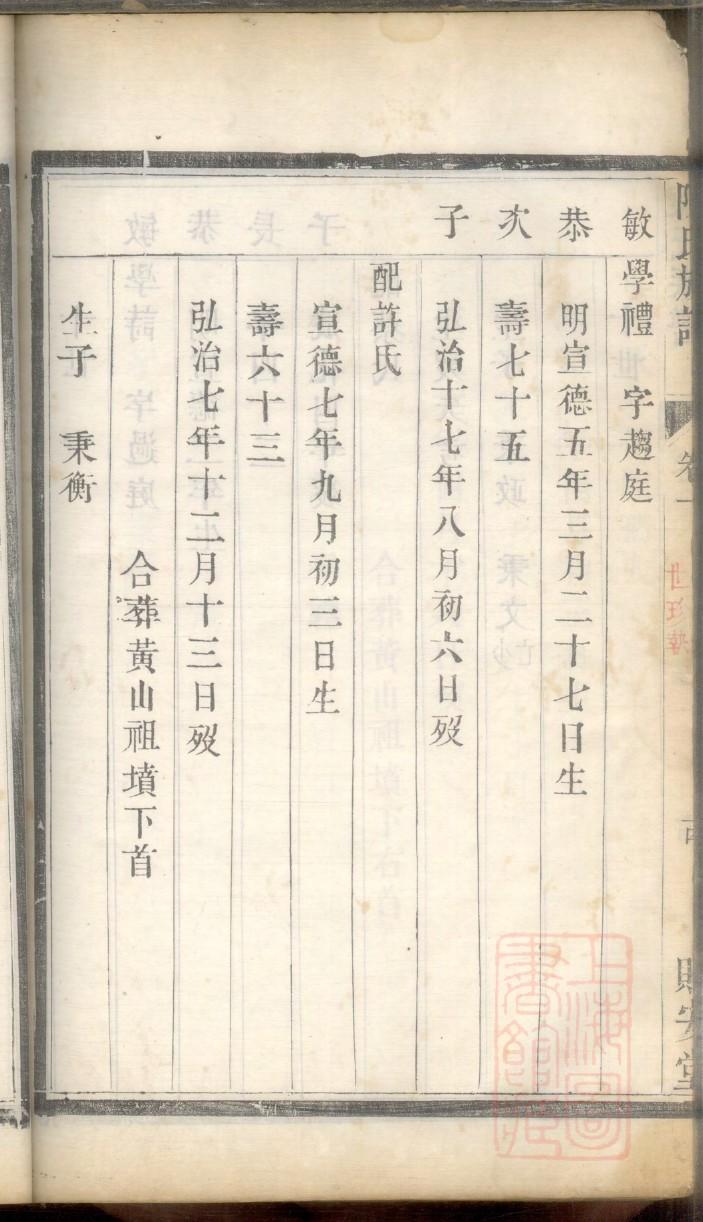 氏族譜
卷一
安堂
敏學禮 字趨庭
恭 明宣德五年三月二十七日生
次 壽七十五
子 弘治十七年八月初六日歿
配許氏
宣德七年九月初三日生
壽六十三
弘治七年十二月十三日歿
合葬黃山祖墳下首
生子 秉衡
上海圖書館藏